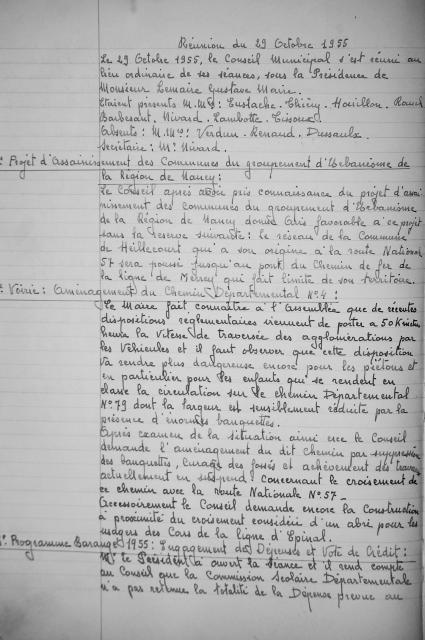 Réunion du 29 Octobre 1955
Le 29 Octobre 1955, le Conseil Municipal s'est réuni au
lieu ordinaire de ses séances, sous la Présidence de
Monsieur Lemaire Gustave Maire.
Etaient présents M.M. Eustache - Thiéry - Houillon
Barbesant. Nivard. Lambotte.
Absents : M.M. Verdun - Renaud. Dussaulx.
Secrétaire : Mr Nivard.
Projet d'Assainissement des Communes du groupement d'Urbanisme de
la Région de Nancy :
Le Conseil après avoir pris connaissance du projet d'assai
nissement des communes du groupement d'Urbanisme
de la Région de Nancy donne avis favorable à ce projet
sous la réserve suivante : le réseau de la Commune
de Heillecourt qui a son origine à la route National
57 sera poussé jusqu'au pont du Chemin de fer de
la ligne de Mérrey qui fait limite de son territoire.
Voirie : Aménagement du Chemin Départemental N° 4 :
Le Maire fait connaître à l'Assemblée que de récentes
dispositions réglementaires viennent de porter à 50 Km
heure la vitesse de traversée des agglomérations par
les véhicules et il faut observer que cette disposition
va rendre plus dangereuse encore pour les piétons et
en particulier pour les enfants qui se rendent en
classe la circulation sur le chemin Départemental
N° 79 dont la largeur est sensiblement réduite par la
présence d'énormes banquettes.
Après examen de la situation ainsi créée le Conseil
demande l'aménagement du dit chemin par suppression
des banquettes, curage des fossés et achèvement des travaux
actuellement en suspend concernant le croisement de
ce chemin avec la route Nationale N° 57 -
Accessoirement le Conseil demande encore la Construction
à proximité du croisement considéré d'un abri pour les
usagers des Cars de la ligne d'Epinal.
Programme Barangé 1955 : Engagement des Dépenses et Vote de Crédit :
Mr le Président a ouvert la séance et il rend compte
au Conseil que la Commission Scolaire Départementale
n'a pas retenu la totalité de la Dépense prévue au